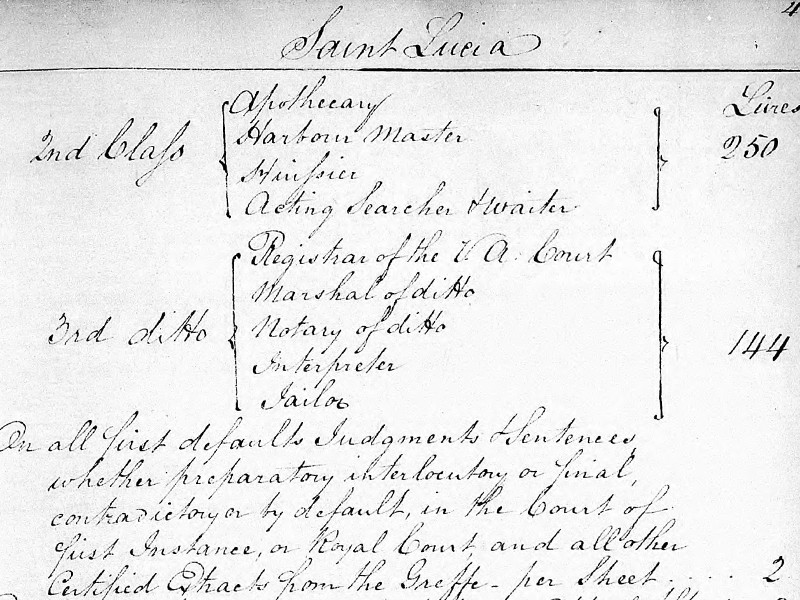 4
Saint Lucia
Livres
2nd Class
Apothecary
Harbour Master
Huissier
Acting Searcher & Waiter
250
3rd ditto
Registrar of the V. A. Court
Marshal of ditto
Notary of ditto
Interpreter
Jailor
144
On all first defaults Judgments & Sentences,
whether preparatory interlocutory or final,
contradictory or by default, in the Court of
first Instance, or Royal Court, and all other
Certified Extracts from the Greffe - per Sheet ..... 2